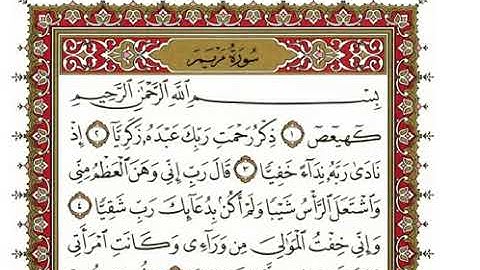 سُورَةُ مَرْيَمَ
بِسْمِ ٱللَّهِ ٱلرَّحْمَٰنِ ٱلرَّحِيمِ
كٓهيعٓصٓ ١ ذِكْرُ رَحْمَتِ رَبِّكَ عَبْدَهُۥ زَكَرِيَّآ ٢ إِذْ
نَادَىٰ رَبَّهُۥ نِدَآءً خَفِيًّا ٣ قَالَ رَبِّ إِنِّى وَهَنَ ٱلْعَظْمُ مِنِّى
وَٱشْتَعَلَ ٱلرَّأْسُ شَيْبًا وَلَمْ أَكُنۢ بِدُعَآئِكَ رَبِّ شَقِيًّا ٤
وَإِنِّى خِفْتُ ٱلْمَوَٰلِىَ مِن وَرَآءِى وَكَانَتِ ٱمْرَأَتِى